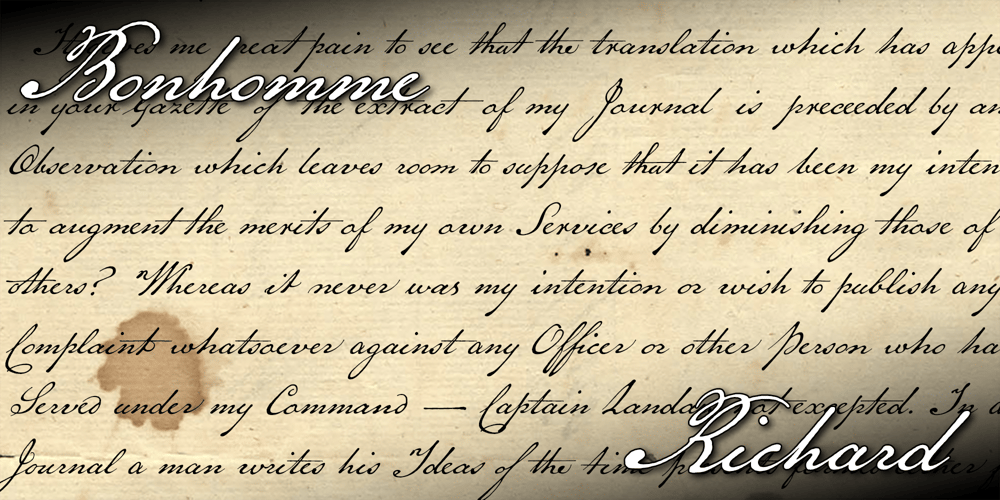 Bonhomme
me great pain to see that the translation which has
in your Gazette of the extract of my Journal is preceeded by an
Observation which leaves room to suppose that it has been my inten
to augment the merits of my own Services by diminishing those of
others? Whereas it never was my intention or wish to publish any
Complaint whatsoever against any Officer or other Person who ha
Served under my Command — Captain Landa not excepted. In a
Journal a man writes his Ideas of the time
Richard